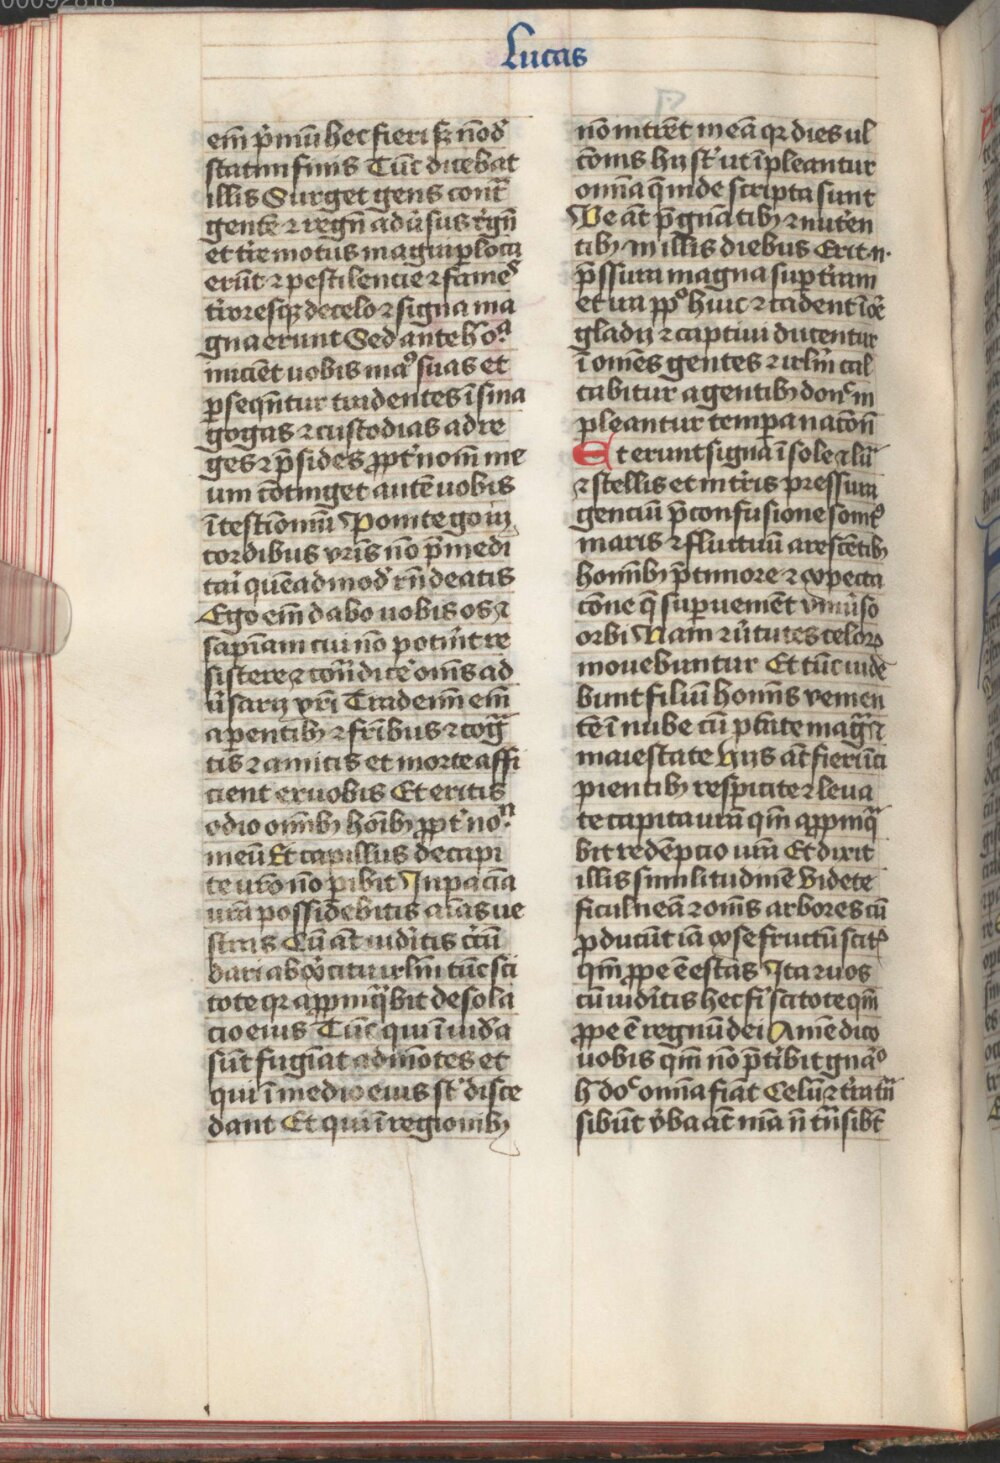 00092818
Lucas
em̄ p̄mū hec fieri sꝫ nōd᷒
statim finis Tūc dicebat
illis Surget gens cont᷑
gentē ⁊ regnū adūsus r̄gn̄
et t̄re motus magni ꝑ loca
erūt ⁊ pestilencie ⁊ fames
t̄roresqꝫ de celo ⁊ signa ma
gna erunt Sed ante h̄ oīa
iniciēt uobis ma᷒ suas et
ꝑseqūtur tradentes ī sina
gogas ⁊ custodias ad re
ges ⁊ p̄sides ꝓpt᷑ nom̄ me
um cōtinget autē uobis
ī testīonīū Ponite g̊ o in
cordibus vr̄is nō p̄medi
tari quēadmod᷒ rn̄deatis
Ego em̄ dabo uobis os ⁊
sapīam cui nō potīnt re
sistere ⁊ cōn̄dicē om̄s ad
ūsarij vr̄i Trademī em̄
a parentibꝫ ⁊ fr̄ibus ⁊ coḡ
tis ⁊ amicis et morte affi
cient ex uobis Et eritis
odio om̄ibꝫ hōibꝫ ꝓpt᷑ no᷑
meū Et capillus de capi
te uro nō ꝑibit In pacīa
urā possidebitis aīas ue
stras Cū āt uiditis c̄cū
dari ab ex̄citu ir̄lm tūc sci
tote qꝛ appinq̄bit desola
cio eius Tūc qui ī iud᷒a
sūt fugiāt ad mōtes et
qui ī medio eius st᷑ disce
dant Et qui ī regionibꝫ
nō intrēt in eā qꝛ dies ul
cōnis hij st᷑ ut īpleantur
omīa q̄ inde scripta sunt
Ve āt p̄gnātibꝫ ⁊ nut̄en
tibꝫ in illis diebus Erit .n.
p̄ssura magna suꝑ t̄ram
et ira pp̄l᷒o huic ⁊ cadent ī oē
gladij ⁊ captiui ducentur
ī omēs gentes ⁊ ir̄lm cal
cabitur a gentibꝫ donᶜ in
pleantur tempa nacōn̄
Et erunt signa ī sole ⁊ lūa
⁊ stellis et in t̄ris pressura
genciū p̄ confusione sonit᷒
maris ⁊ fluctuū arescētibꝫ
hoīnibꝫ p̄ timore ⁊ expecta
cōne q̄ suꝑuenient vniūso
orbi Nam ⁊ ūtutes celoꝝ
mouebuntur Et tūc uide
bunt filiū homīs venien
tē ī nube cū ptāte mag̃ ⁊
maiestate hijs āt fieri īci
pientibꝫ respicite ⁊ leua
te capita urā qm̄ appinq̄
bit redēpcio urā Et dixit
illis similitudinē Videte
ficulneā ⁊ om̄s arbores cū
ꝓducūt iā ex se fructū scit᷒
qm̄ ꝓpe ē estas Ita ⁊ uos
cū uiditis hec fi᷑ scitote qm̄
ꝓpe ē regnū dei Amē dico
uobis qm̄ nō p̄t̄ibit gn̄ao
h̄ doᶜ omīa fiāt Celū ⁊ t̄ra tn̄
sibūt v̄ba āt mīa n̄ tn̄sibt̄